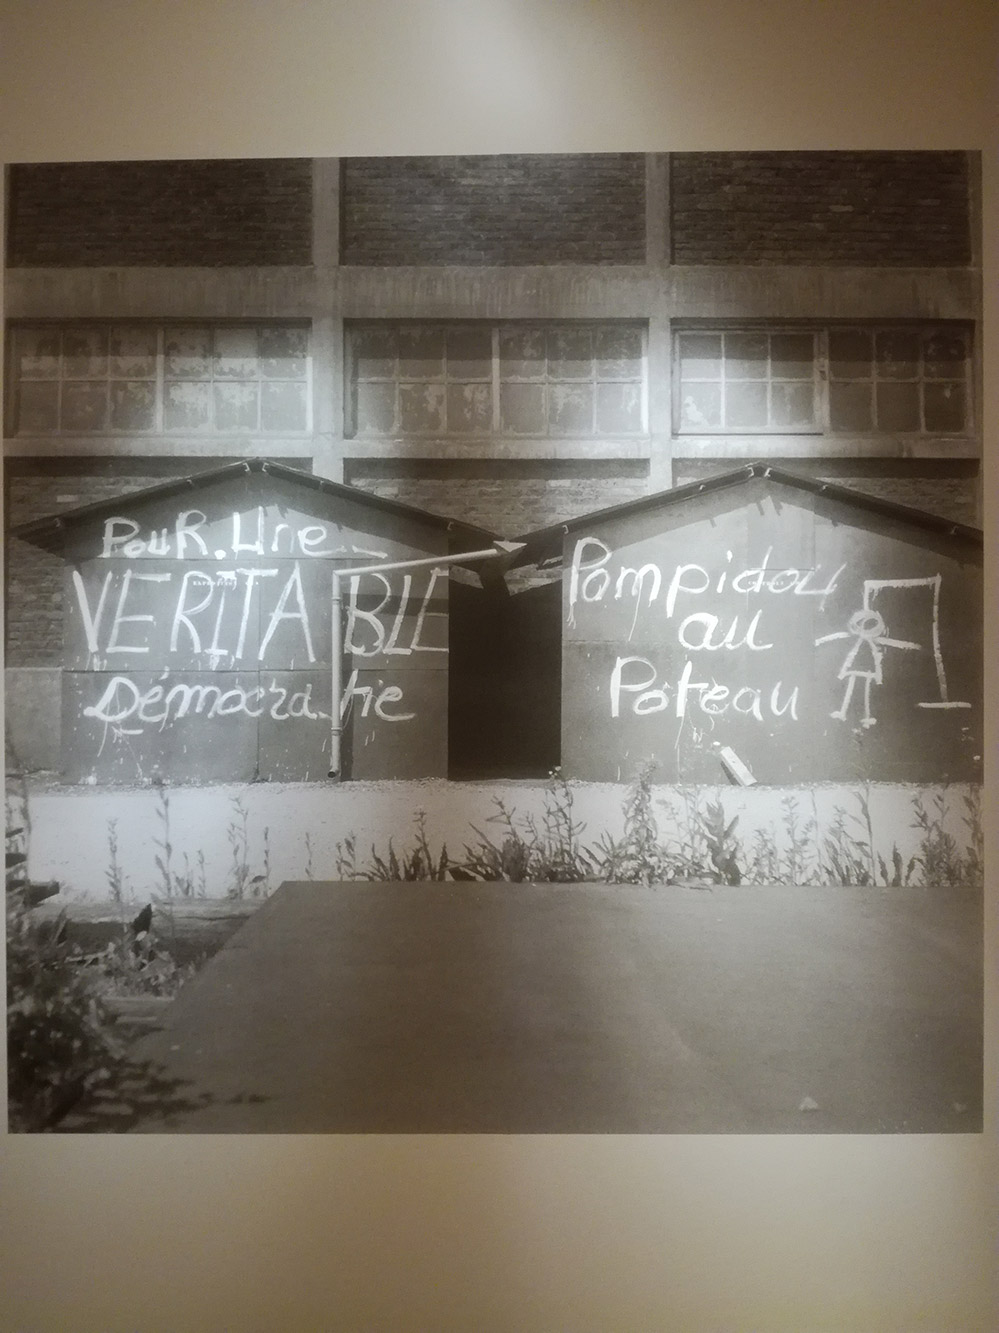 PouR.Une
VERITABLE
Démocratie
Pompidou
au
Poteau